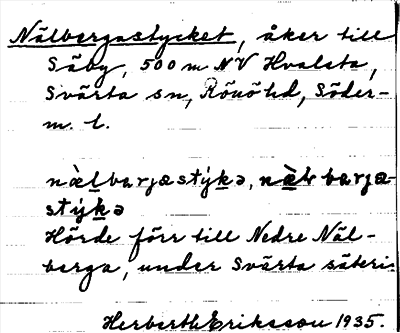 Nälbergastycket, åker till
Säby, 500 m NV Hvalsta,
Svärta sn, Rönö hd, Söder-
m. l.
nàlbarjastýkə, nàlbarja-
stýkə
Hörde förr till Nedre Näl-
berga, under Svärta säteri.
Herberth Eriksson 1935.